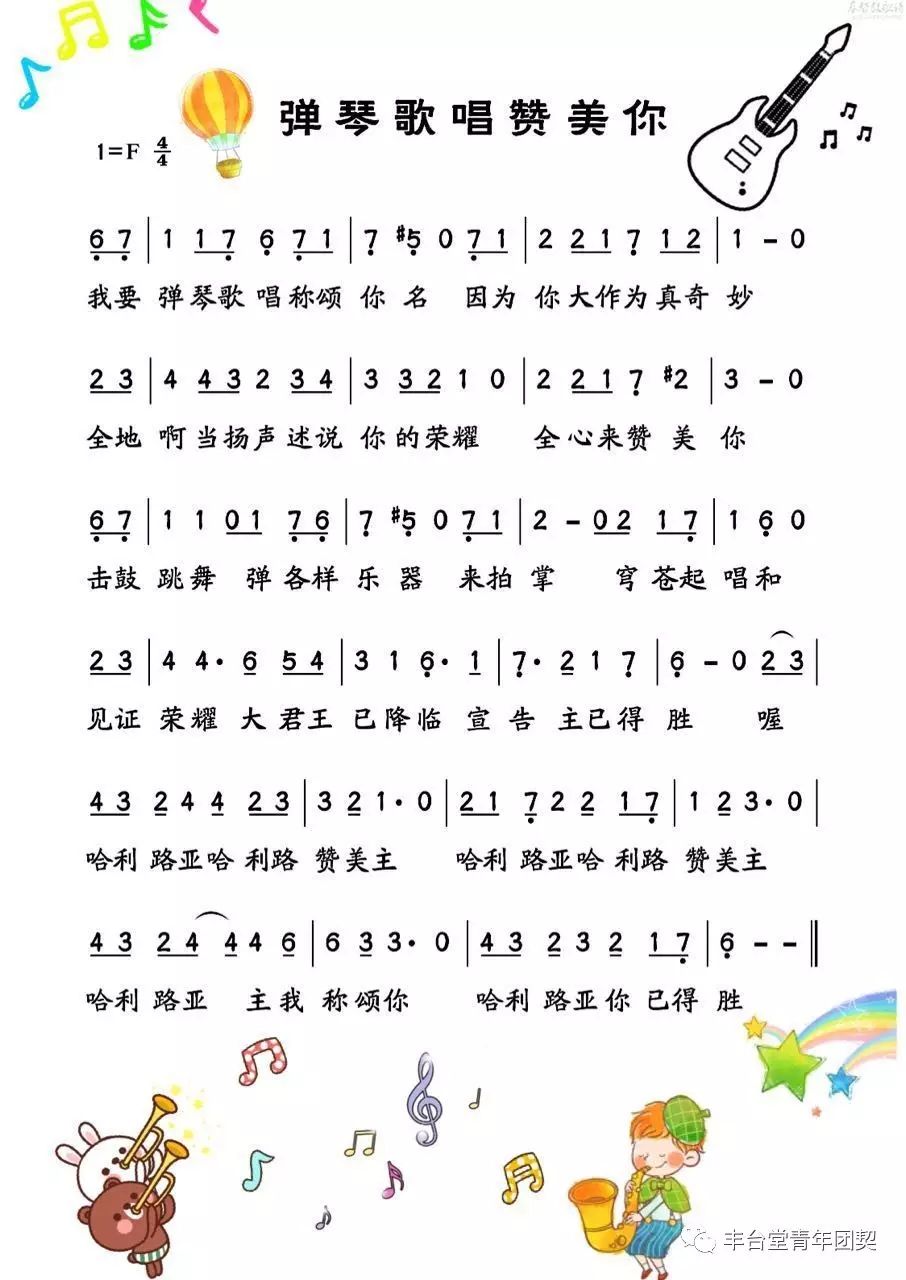 弹琴歌唱赞美你
1=F 4/4
6 7 | 1 1 7 6 7 1 | 7 #5 0 7 1 | 2 2 1 7 1 2 | 1 - 0
我要 弹琴歌 唱称颂 你 名 因为 你大作为真奇 妙
2 3 | 4 4 3 2 3 4 | 3 3 2 1 0 | 2 2 1 7 #2 | 3 - 0
全地 啊当扬声述说 你的荣耀 全心来赞 美 你
6 7 | 1 1 0 1 7 6 | 7 #5 0 7 1 | 2 - 0 2 1 7 | 1 6 0
击鼓 跳舞 弹各样 乐器 来拍 掌 穹苍起 唱和
2 3 | 4 4· 6 5 4 | 3 1 6· 1 | 7· 2 1 7 | 6 - 0 2 3 |
见证 荣耀 大君王 已降临 宣 告 主已得 胜 喔
4 3 2 4 4 2 3 | 3 2 1· 0 | 2 1 7 2 2 1 7 | 1 2 3· 0 |
哈利 路亚哈 利路 赞美主 哈利 路亚哈 利路 赞美主
4 3 2 4 4 4 6 | 6 3 3· 0 | 4 3 2 3 2 1 7 | 6 - - ‖
哈利 路亚 主我 称颂你 哈利 路亚你 已得 胜
丰台堂青年团契